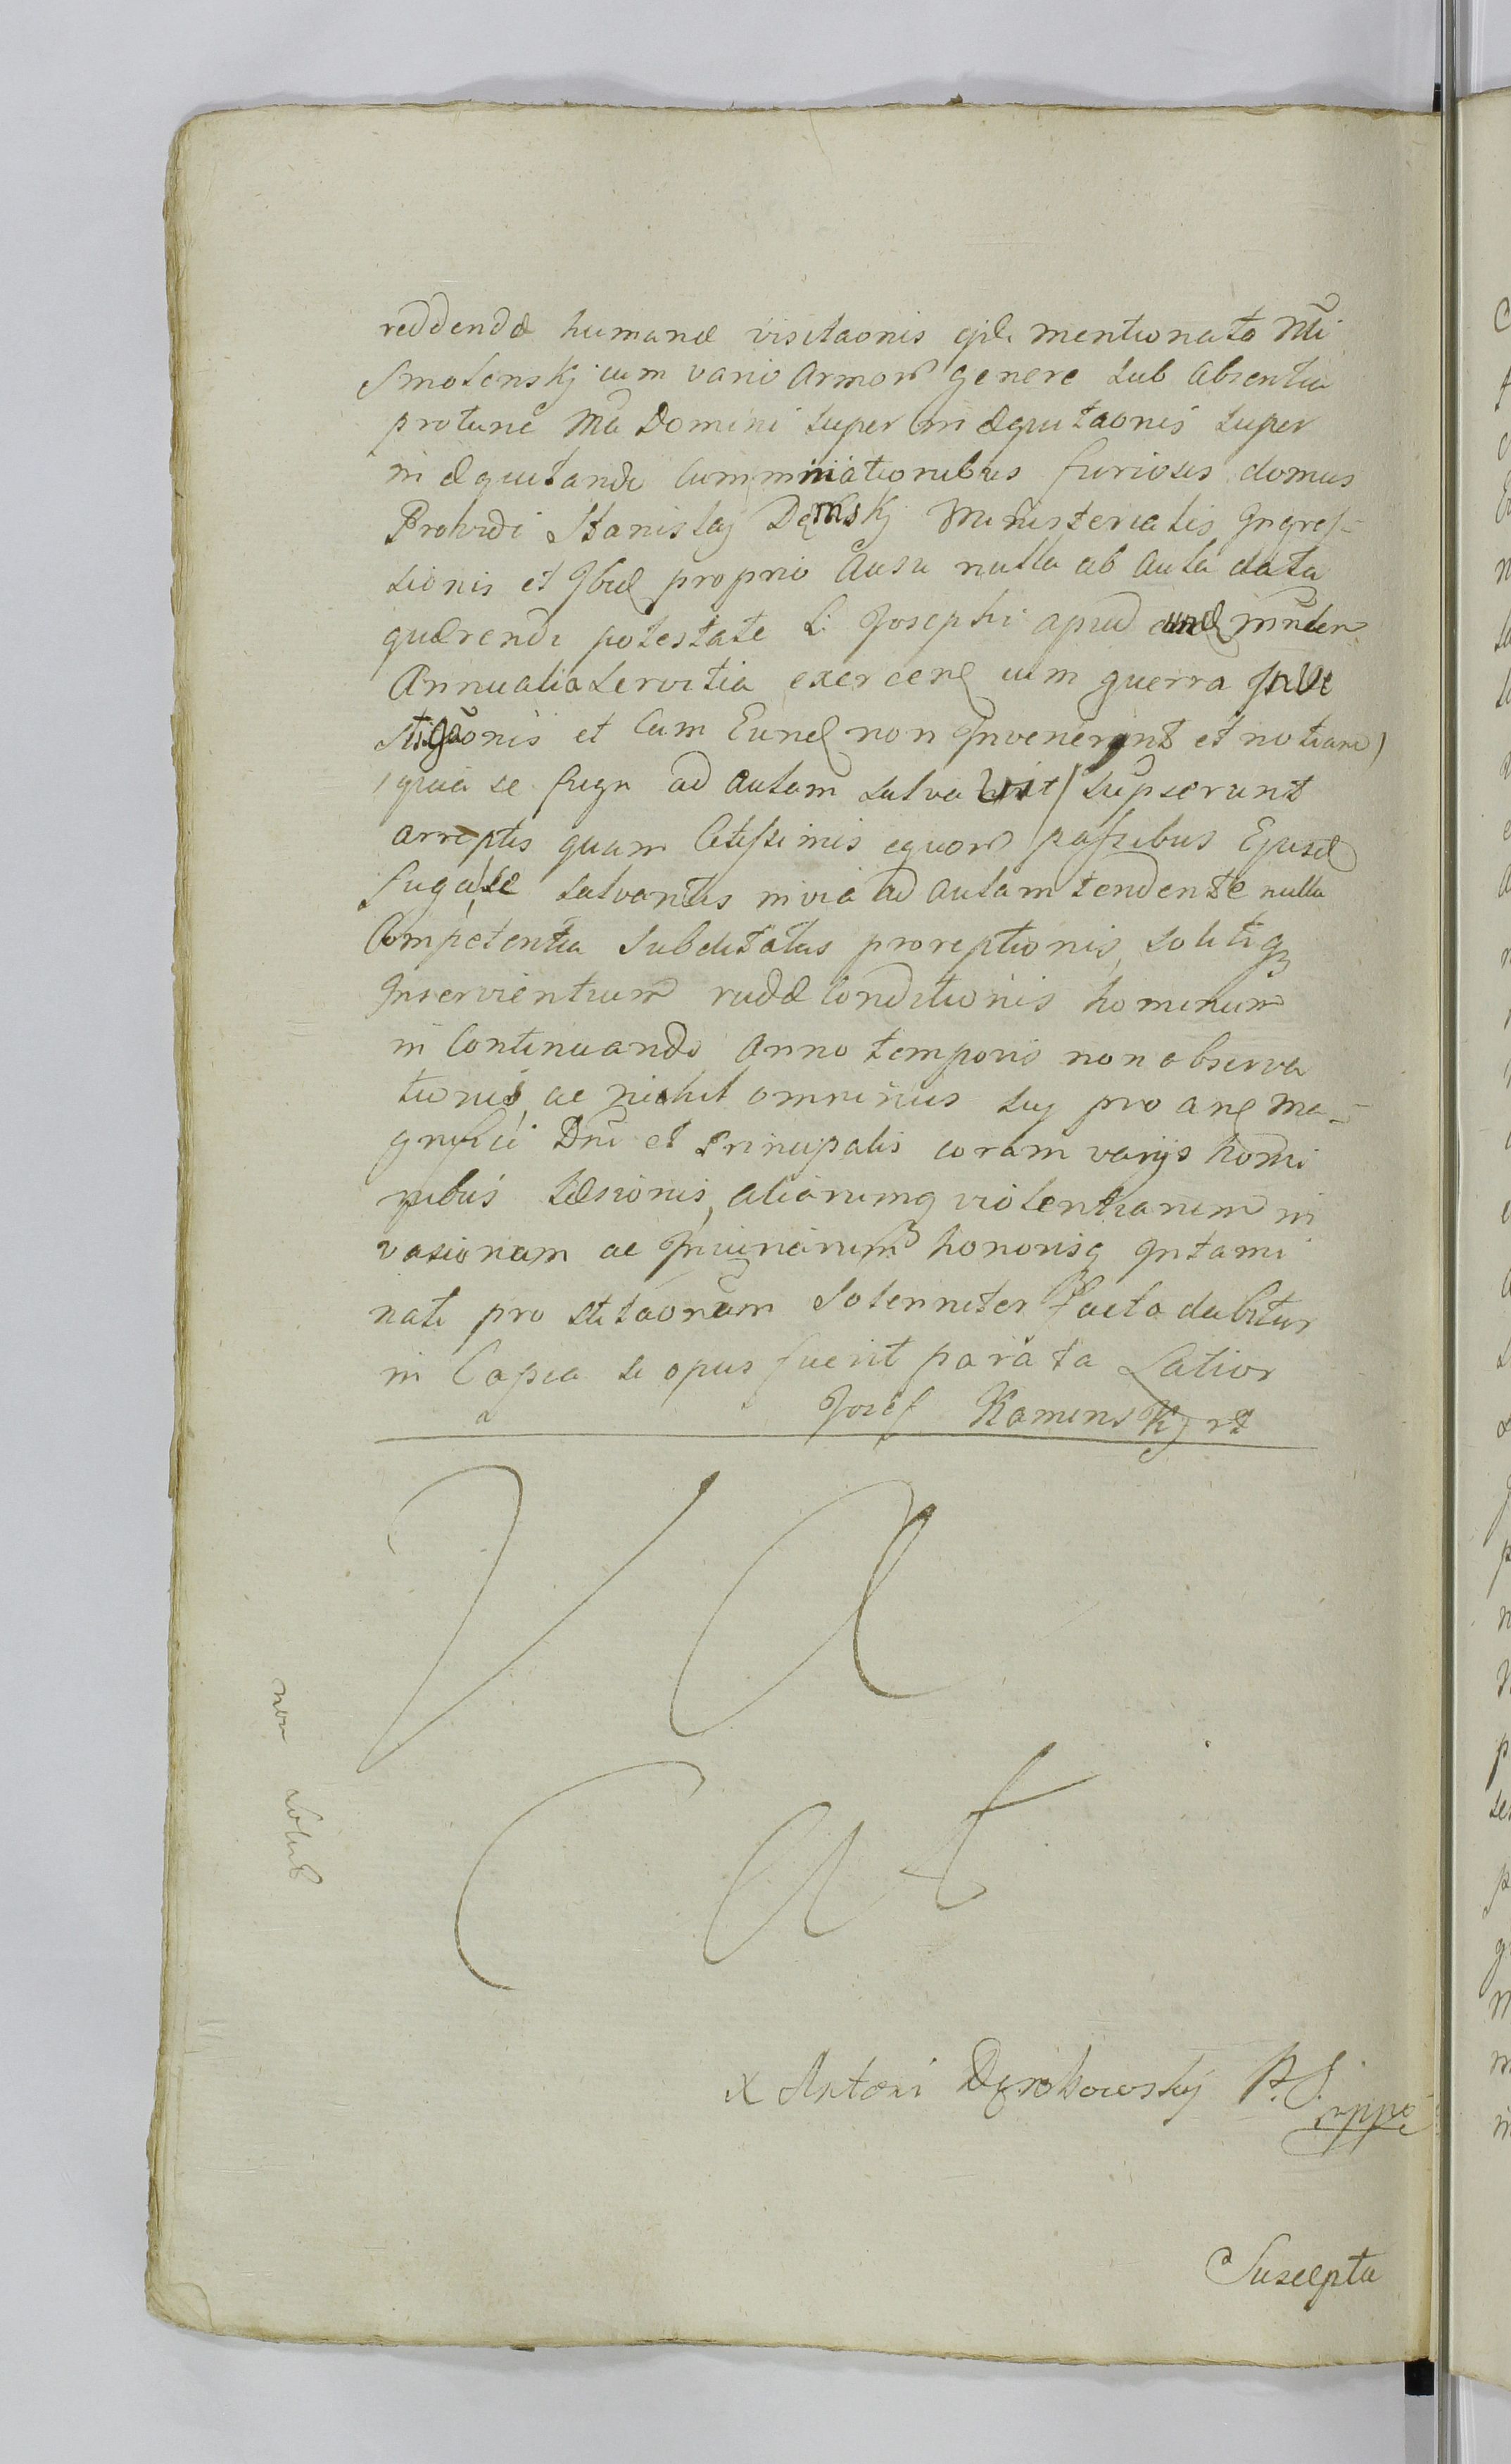 reddendæ humanæ visitaonis gsli mentionato Mci
Smolenskj cum vario Armor genere sub absentia
protunc Mci Domini super in æquitaonis super
in æquitando comminationibus furiosis domus
Prohidi Stanislaj Demskj Ministerialis Ingres-
sionis et Ibid proprio Ausu nulla ab Aula data
quærendi potestate L. Josephi apud eund
Annualia servitia exercen cum guerra Inve
stigãonis et Cum Eund non Invenerunt et notiam
/quia se fuga ad Aulam salvavit/ supserunt
arreptis quam Citissimis equor passibus Ejusd
fuga se salvantis in via ad aulam tendente nulla
Competentia Subditatus proreptionis, solitiq
Inservientium rudæ Conditionis hominum
in Continuando Anno temporis non observa
tionis, ac nichil omninus suj pro ane Ma-
gnifici Dni et Principalis coram varijs homi
nibus læsionis, aliarumq violentiarum in
vasionum ac Injuriarum honorisq Intami
nati pro stitaonum Solenniter facta dabitur
in Copia si opus fuerit parata Latior
Josef Kamenskj
Va
Cat
non solut
X Antoni Dembowskij P. S. mppa
Suscepta